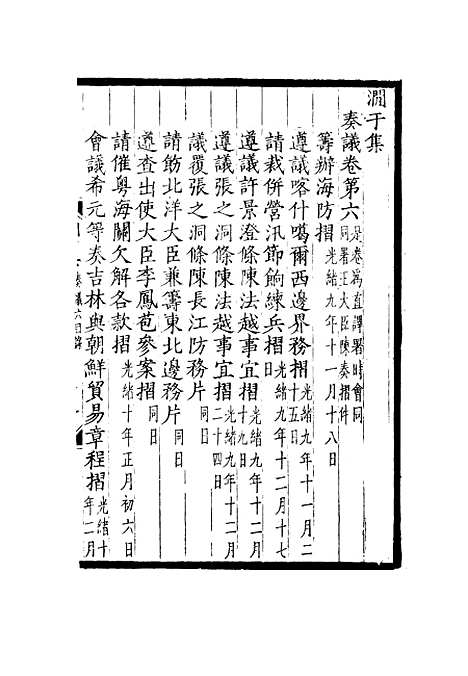 澗于集
奏議卷第六 是卷為直譯署時會同同署王大臣陳奏摺件
籌辦海防摺 光緒九年十一月十八日
遵議喀什噶爾西邊界務摺 光緒九年十一月二十五日
請裁併營汛節餉練兵摺 光緒九年十二月十七日
遵議許景澄條陳法越事宜摺 光緒九年十二月十九日
遵議張之洞條陳法越事宜摺 光緒九年十二月二十四日
議覆張之洞條陳長江防務片 同日
請飭北洋大臣兼籌東北邊務片 同日
遵查出使大臣李鳳苞參案摺 同日
請催粵海關欠解各款摺 光緒十年正月初六日
會議希元等奏吉林與朝鮮貿易章程摺 光緒十年二月